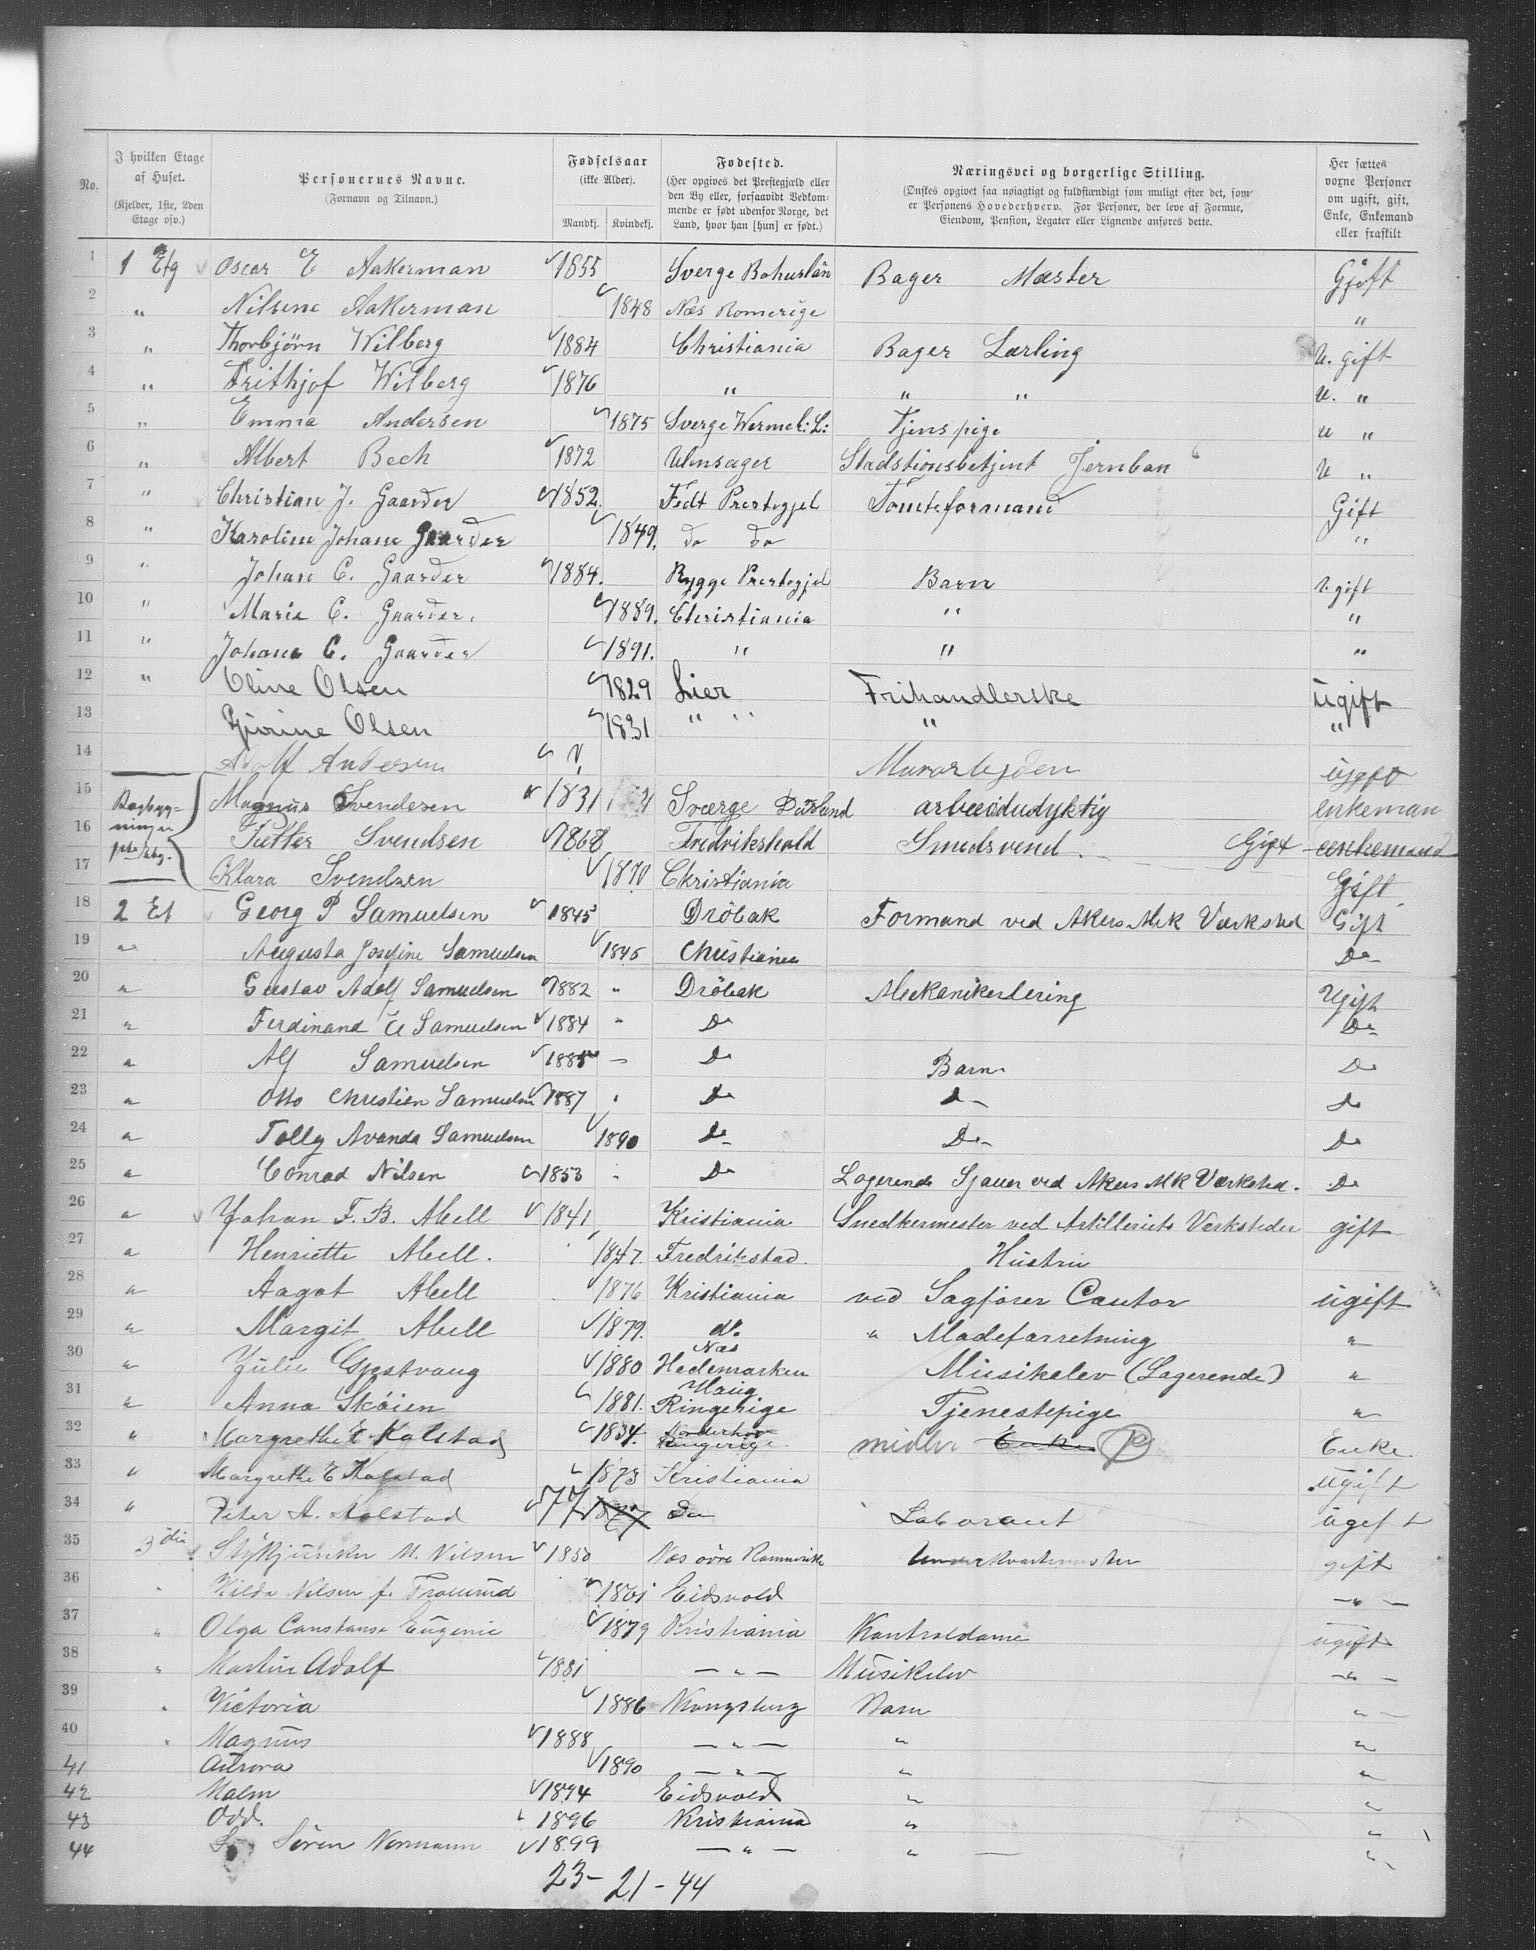 No.
I hvilken Etage af Huset. (Kjelder, 1ste, 2den Etage osv.)
Personernes Navne. (Fornavn og Tilnavn.)
Fødselsaar (ikke Alder). Mandkj. Kvindekj.
Fødested. (Her opgives det Prestegjæld eller den By eller, forsaavidt Vedkommende er født udenfor Norge, det Land, hvor han [hun] er født.)
Næringsvei og borgerlige Stilling. (Ønskes opgivet saa nøiagtigt og fuldstændigt som muligt efter det, som er Personens Hovederhverv. For Personer, der leve af Formue, Eiendom, Pension, Legater eller Lignende anføres dette.
Her sættes voxne Personer om ugift, gift, Enke, Enkemand eller fraskilt
1 1 Etg Oscar E Aakerman 1855 Sverge Bohuslän Bager Mæster Gjift
2 " Nilsine Aakerman 1848 Næs Romerige "
3 " Thorbjörn Wilberg 1884 Christiania Bager Lærling U. gift
4 " Frithjof Wilberg 1876 " " " U. "
5 " Emma Andersen 1875 Sverge Wermel: L: Tjenspige U "
6 " Albert Bech 1872 Ulnsager Stadstionsbetjent Jernban U "
7 " Christian J. Gaarder 1852. Fedt Prestegjel Tomteformand Gift
8 " Karoline Johane Gaarder 1849. do do "
9 " Johan C. Gaarder 1884. Rygge Prestegjel Barn U. gift
10 " Marie C. Gaarder. 1889. Christiania " "
11 " Johane C. Gaarder 1891. " " "
12 " Oline Olsen 1829 Lier Frihandlerske ugift
13 Olsen 1831 " " " "
14 Adolf Andersen Murarbejden ugift
15 Bagbygningen Magnus Svendsen 1831 Sværge Dalsland arbeidudyktig enkeman
16 Petter Svendsen 1868 Fredrikshald Smedsvend. Gift enkemand
17 Klara Svendsen 1870 Christiania Gift
18 2 Et Georg P Samuelsen 1845 Dröbak Formand ved Akers Mek Værksted Gift
19 " Augusta Josefine Samuelsen 1845 Christiania Do
20 " Gustav Adolf Samuelsen 1882 " Dröbak Mekanikerlering Ugift
21 " Ferdinand E Samuelsen 1884 " Do Do
22 " Alf Samuelsen 1885 – Do Barn Do
23 " Otto Christian Samuelsen 1887 " Do Do Do
24 " Tolly Avanda Samuelsen 1890 Do Do Do
25 " Conrad Nilsen 1853 " Do Logerende Sjauer ved Akers Mk Værksted. Do
26 " Johan F. B. Abell 1841 Kristiania Snedkermester ved Artilleriets Værksteder gift
27 " Henriette Abell. 1847. Fredrikstad. Hustru
28 " Aagot Abell 1876 Kristiania ved Sagfører Contor ugift
29 " Margit Abell 1879. do " Madeforretning "
30 " Julie Gjestvang 1880 Næs Hedemarken Musikelev (Logerende) "
31 " Anna Skøien 1881. Haug Ringerige Tjenestepige "
32 " Margrethe E Kolstad 1834. Norderhov Ringerige midler Enke P Enke
33 " Margrethe E Kolstad 1873 Kristiania ugift
34 " Peter A. Kolstad 77 1877 Do Laborant ugift
35 3die Stykjunker M. Nilsen 1850 Næs övre Rommerike Underkvartermester gift
36 " Hilda Nilsen f. 1861 Eidsvold — " —
37 " Olga Constanse Eugenie 1879 Kristiania Kontroldame ugift
38 " Martin Adolf 1881 — " — Musikelev — " —
39 " Victoria 1886 Kongsberg Barn " —
40 " Magnus 1888 — " — " "
41 Aurora 1890 — " — " "
42 Malm 1894 Eidsvold " "
43 Odd. 1896 Kristiania " "
44 Sören Normann 1899 — " — " — "
23 – 21 – 44